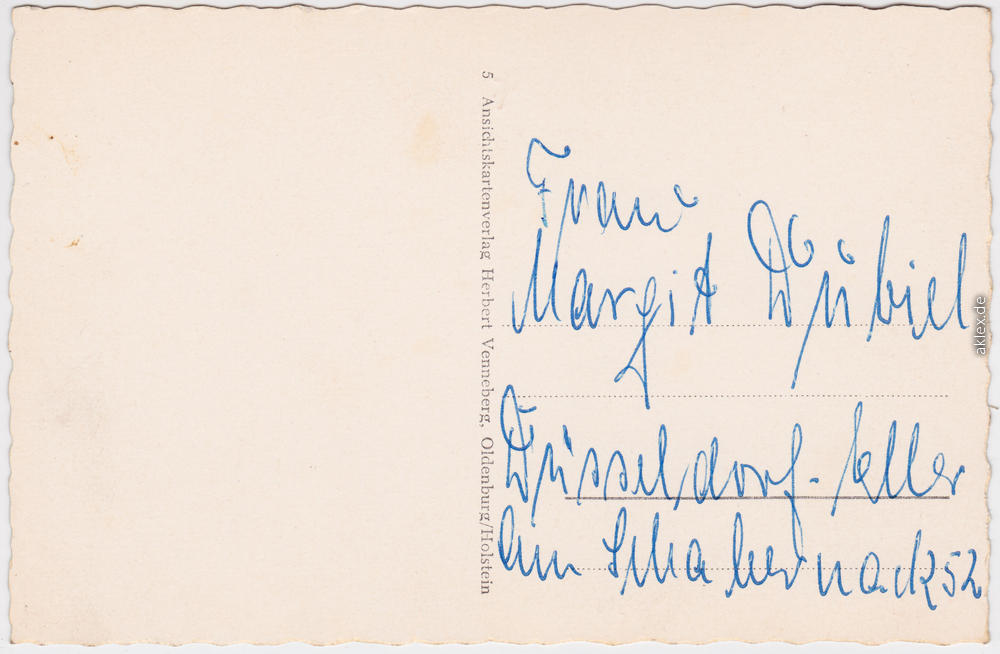 5 Ansichtskartenverlag Herbert Venneberg, Oldenburg/Holstein
Frau
Margit Dübiel
Düsseldorf-Eller
Am Schabernack 52
aklex.de